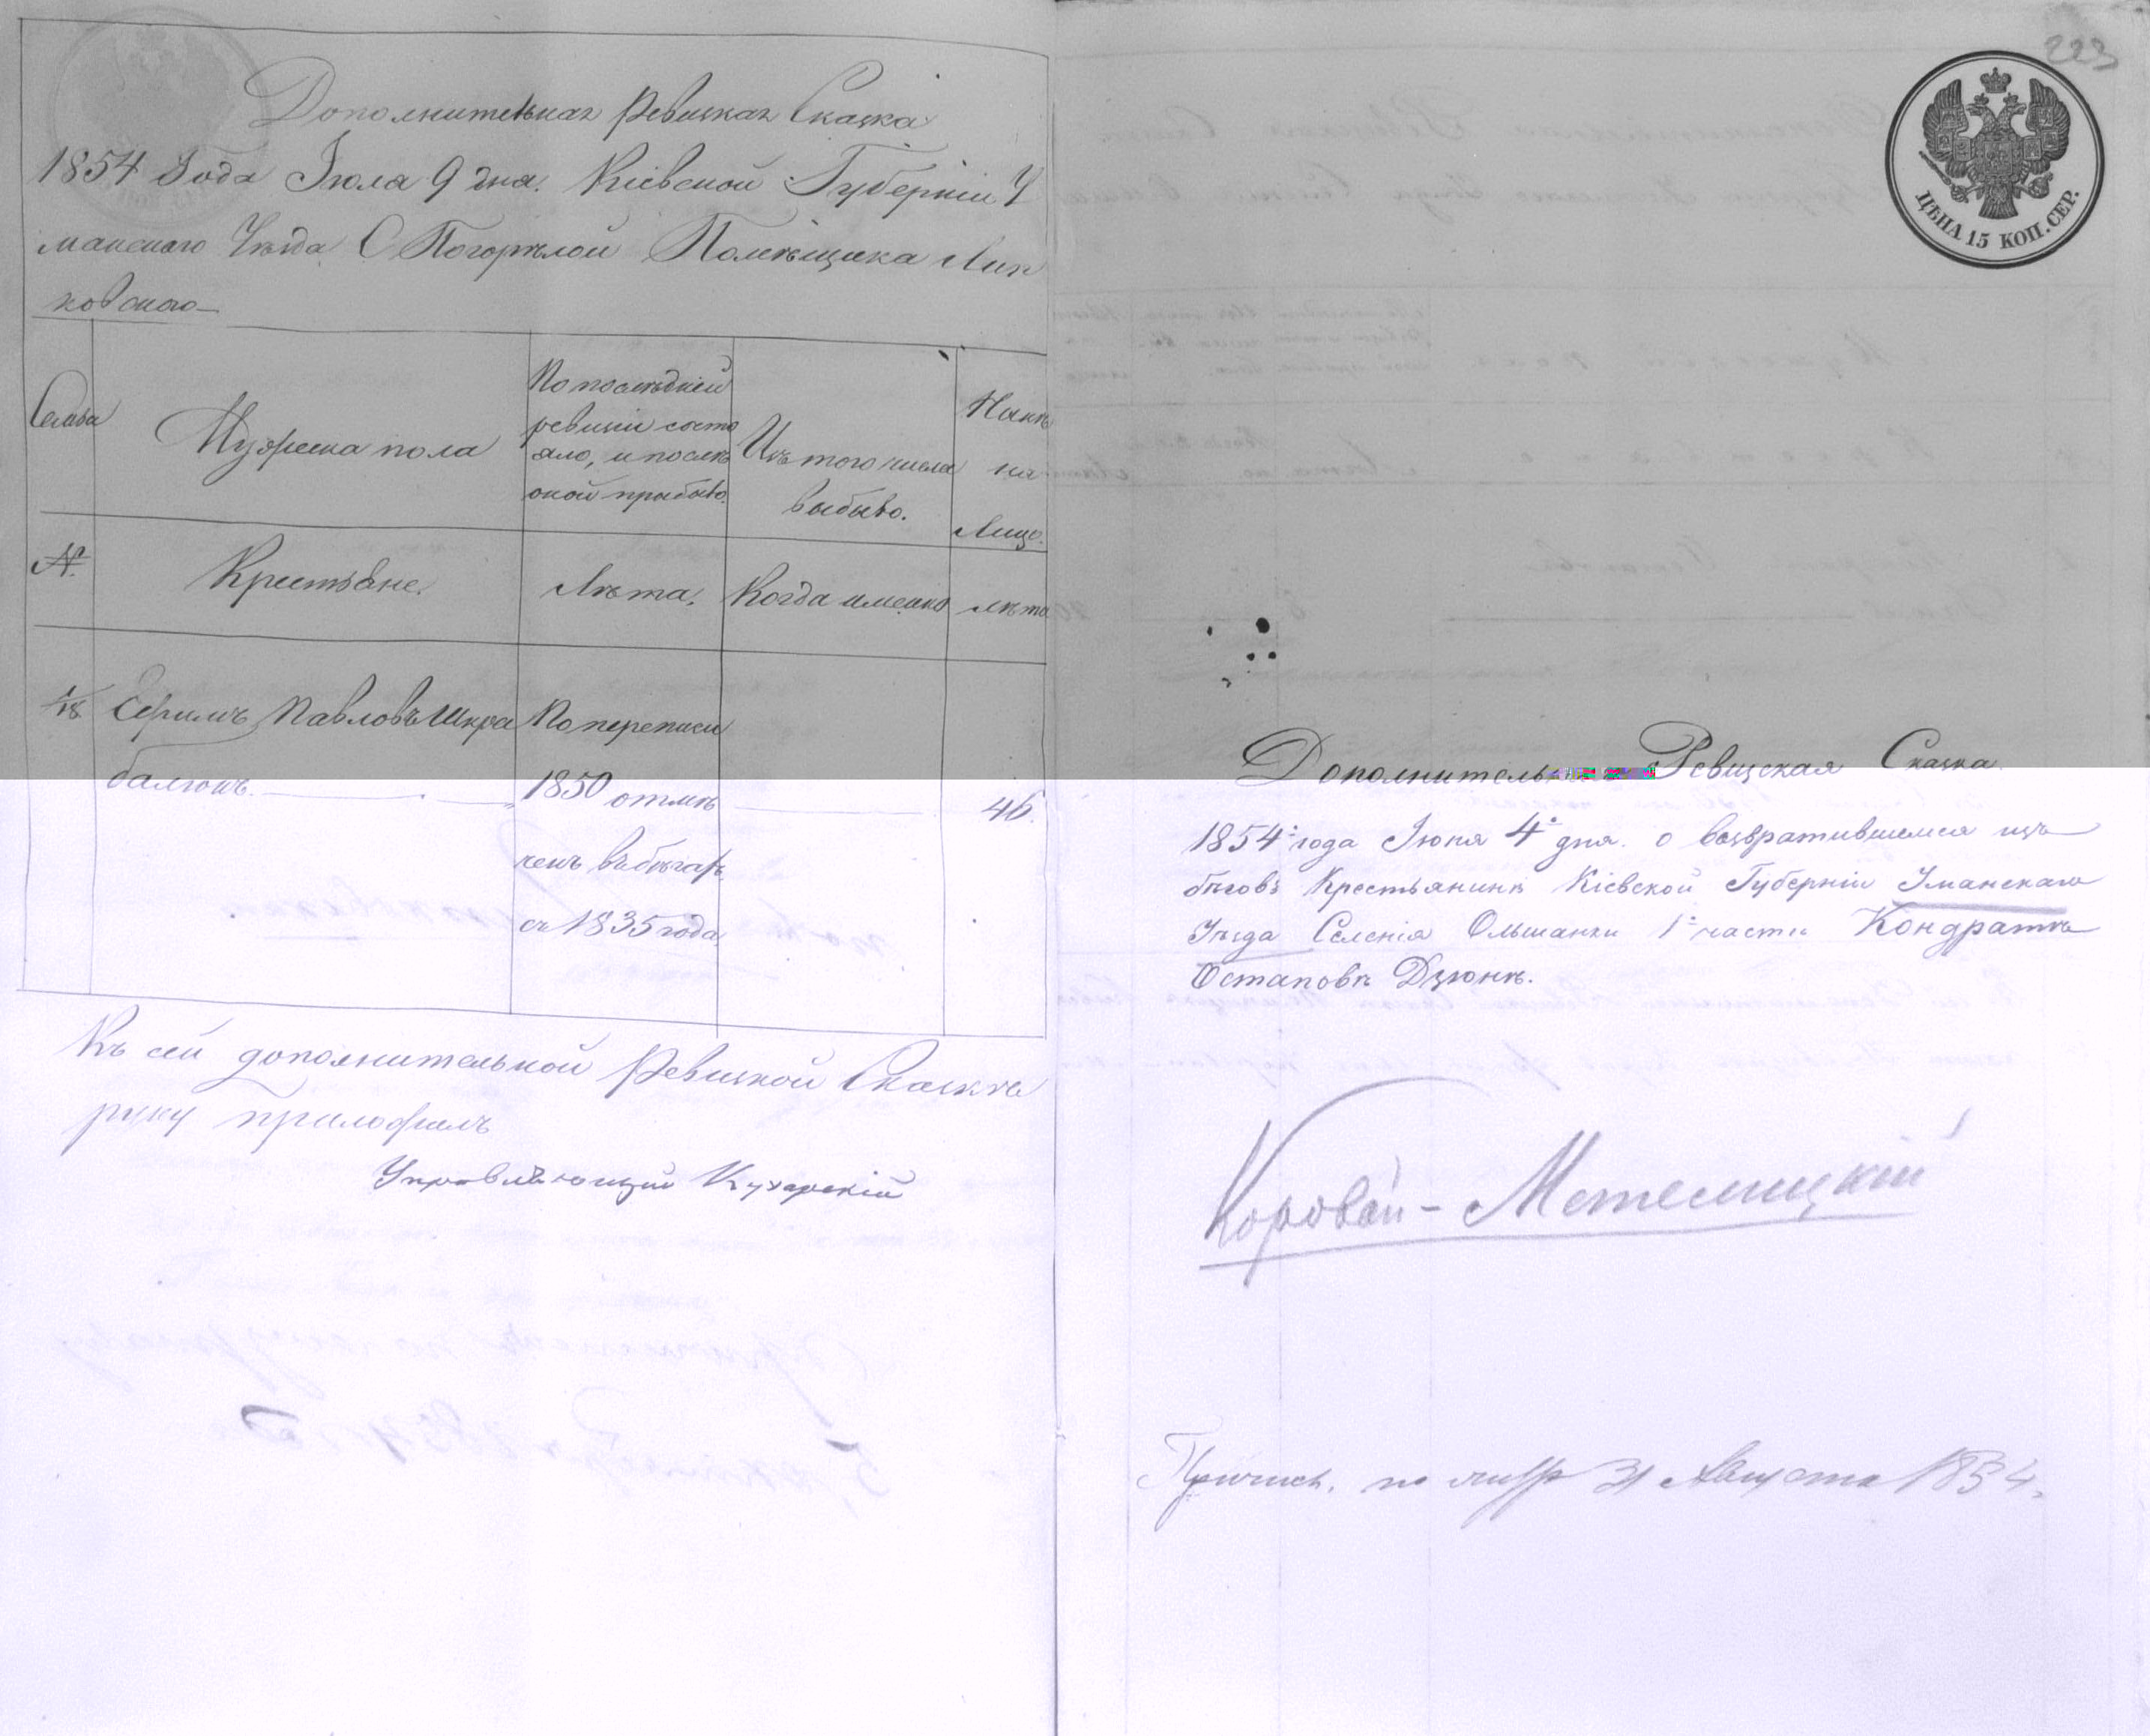 Дополнительная Ревизская Сказка
1854 Года Июля 9 дня. Кіевской Губерніи У
манскаго Уѣзда С Погорѣлой Помѣщика Лип
ковскаго
Семьи
Мужеска пола
По послѣдней
ревизіи состо
яло, и послѣ
оной прибыло.
Изъ того числа
выбыло.
Нынѣ
на
Лицо.
№
Крестьяне.
Лѣта.
Когда именно
лѣта
Павловъ Шкра
По переписи
1850 отмѣ
ченъ въ бѣгахъ
съ 1835 года
46.
Къ сей дополнительной Ревизкой Сказкѣ
руку приложилъ
Управляющій Кухарскій
223
ЦѢНА 15 КОП. СЕР.
Ревизская Сказка
1854 года Іюня 4 дня. о возвратившемся изъ
бѣговъ Крестьянинѣ Кіевской Губерніи Уманскаго
Уѣзда Селенія Ольшанки 1 части Кондратѣ
Остаповѣ Дзюнѣ.
Корован - Метелицкій
Августа 1854.